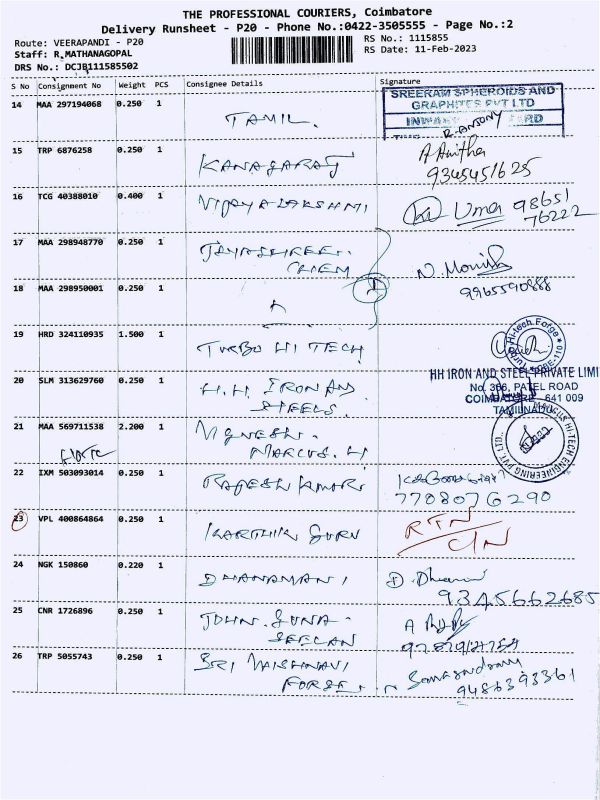 THE PROFESSIONAL COURIERS, Coimbatore
Delivery Runsheet - P20 - Phone No.:0422-3505555 - Page No.:2
Route: VEERAPANDI - P20
Staff: R.MATHANAGOPAL
DRS No.: DCJB111585502
RS No.: 1115855
RS Date: 11-Feb-2023
S No Consignment No Weight PCS Consignee Details Signature
14 MAA 297194068 0.250 1 TAMIL.
SREERAM SPHEROIDS AND
GRAPHITES PVT LTD
INWARD
R. ANTONY
15 TRP 6876258 0.250 1 KANAGARAJ A Anitha
9345451625
16 TCG 40388010 0.400 1 VIJAYALAKSHMI Uma 98651
76222
17 MAA 298948770 0.250 1 JAYASHREE.
CHEM N. Monish
9965590888
18 MAA 298950001 0.250 1
19 HRD 324110935 1.500 1 TURBO HI TECH
Hi-tech Forge
20 SLM 313629760 0.250 1 H.H. IRON AND
STEELS.
HH IRON AND STEEL PRIVATE LIMI
No. 366, PATEL ROAD
COIMBATORE - 641 009
TAMILNADU
21 MAA 569711538 2.200 1 VIGNESH.
MARCUS. HI
HI-TECH ENGINEERING PVT. LTD.
22 IXM 503093014 0.250 1 RAJESH KUMAR
7708076290
23 VPL 400864864 0.250 1 KARTHIK GURU RTN
C/N
24 NGK 150860 0.220 1 DHANAMANI D. Dhanam
9345662685
25 CNR 1726896 0.250 1 JOHN. GUNA-
SEELAN
26 TRP 5055743 0.250 1 SRI VAISHNAVI
FORGE
9486393361